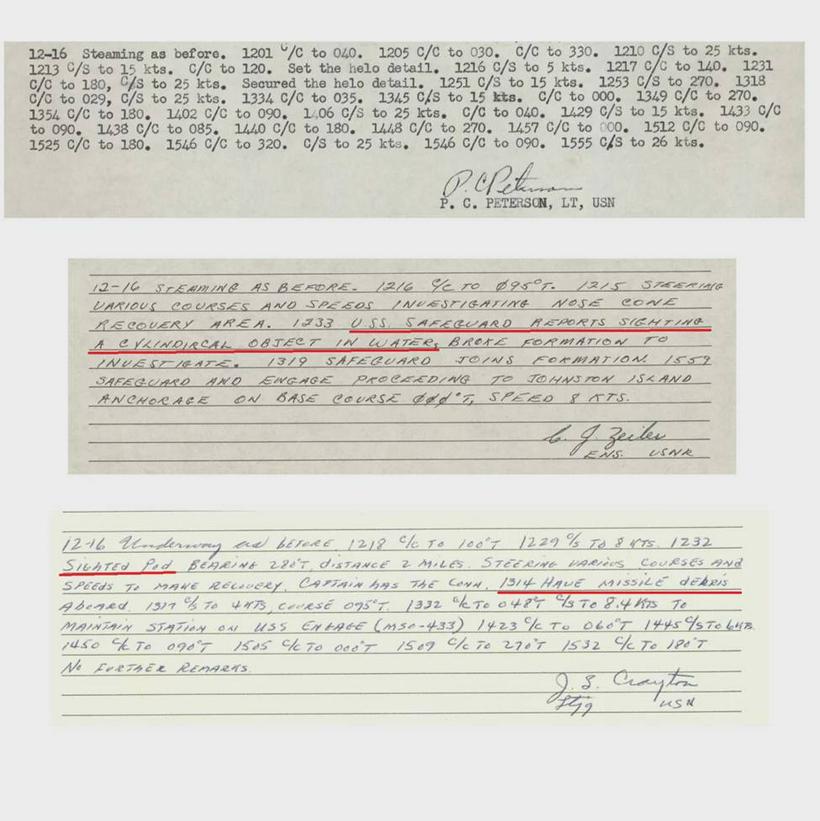 12-16 Steaming as before. 1201 C/C to 040. 1205 C/C to 030. C/C to 330. 1210 C/S to 25 kts.
1213 C/S to 15 kts. C/C to 120. Set the helo detail. 1216 C/S to 5 kts. 1217 C/C to 140. 1231
C/C to 180, C/S to 25 kts. Secured the helo detail. 1251 C/S to 15 kts. 1253 C/S to 270. 1318
C/C to 029, C/S to 25 kts. 1334 C/C to 035. 1345 C/S to 15 kts. C/C to 000. 1349 C/C to 270.
1354 C/C to 180. 1402 C/C to 090. 1406 C/S to 25 kts. C/C to 040. 1429 C/S to 15 kts. 1433 C/C
to 090. 1438 C/C to 085. 1440 C/C to 180. 1448 C/C to 270. 1457 C/C to 000. 1512 C/C to 090.
1525 C/C to 180. 1546 C/C to 320. C/S to 25 kts. 1546 C/C to 090. 1555 C/S to 26 kts.
P. C. Peterson
P. C. PETERSON, LT, USN
12-16 STEAMING AS BEFORE. 1216 C/C TO Ø95°T. 1215 STEERING
VARIOUS COURSES AND SPEEDS INVESTIGATING NOSE CONE
RECOVERY AREA. 1233 U.S.S. SAFEGUARD REPORTS SIGHTING
A CYLINDIRCAL OBJECT IN WATER, BROKE FORMATION TO
INVESTIGATE. 1319 SAFEGUARD JOINS FORMATION. 1559
SAFEGUARD AND ENGAGE PROCEEDING TO JOHNSTON ISLAND
ANCHORAGE ON BASE COURSE ØØØ°T, SPEED 8 KTS.
C. J. Zeiler
ENS. USNR
12-16 Underway as before. 1218 C/C to 100°T 1229 C/S to 8 KTS. 1232
Sighted Pod Bearing 280°T, distance 2 miles. Steering various courses and
speeds to make recovery. Captain has the conn. 1314 Have missile debris
aboard. 1317 C/S to 4 KTS, course 095°T. 1332 C/C to 048°T C/S to 8.4 KTS to
maintain station on USS Engage (MSO-433) 1423 C/C to 060°T 1445 C/S to 6 KTS.
1450 C/C to 090°T 1505 C/C to 000°T 1509 C/C to 270°T 1532 C/C to 180°T
No further remarks.
J. S. Crayton
Ltjg USN